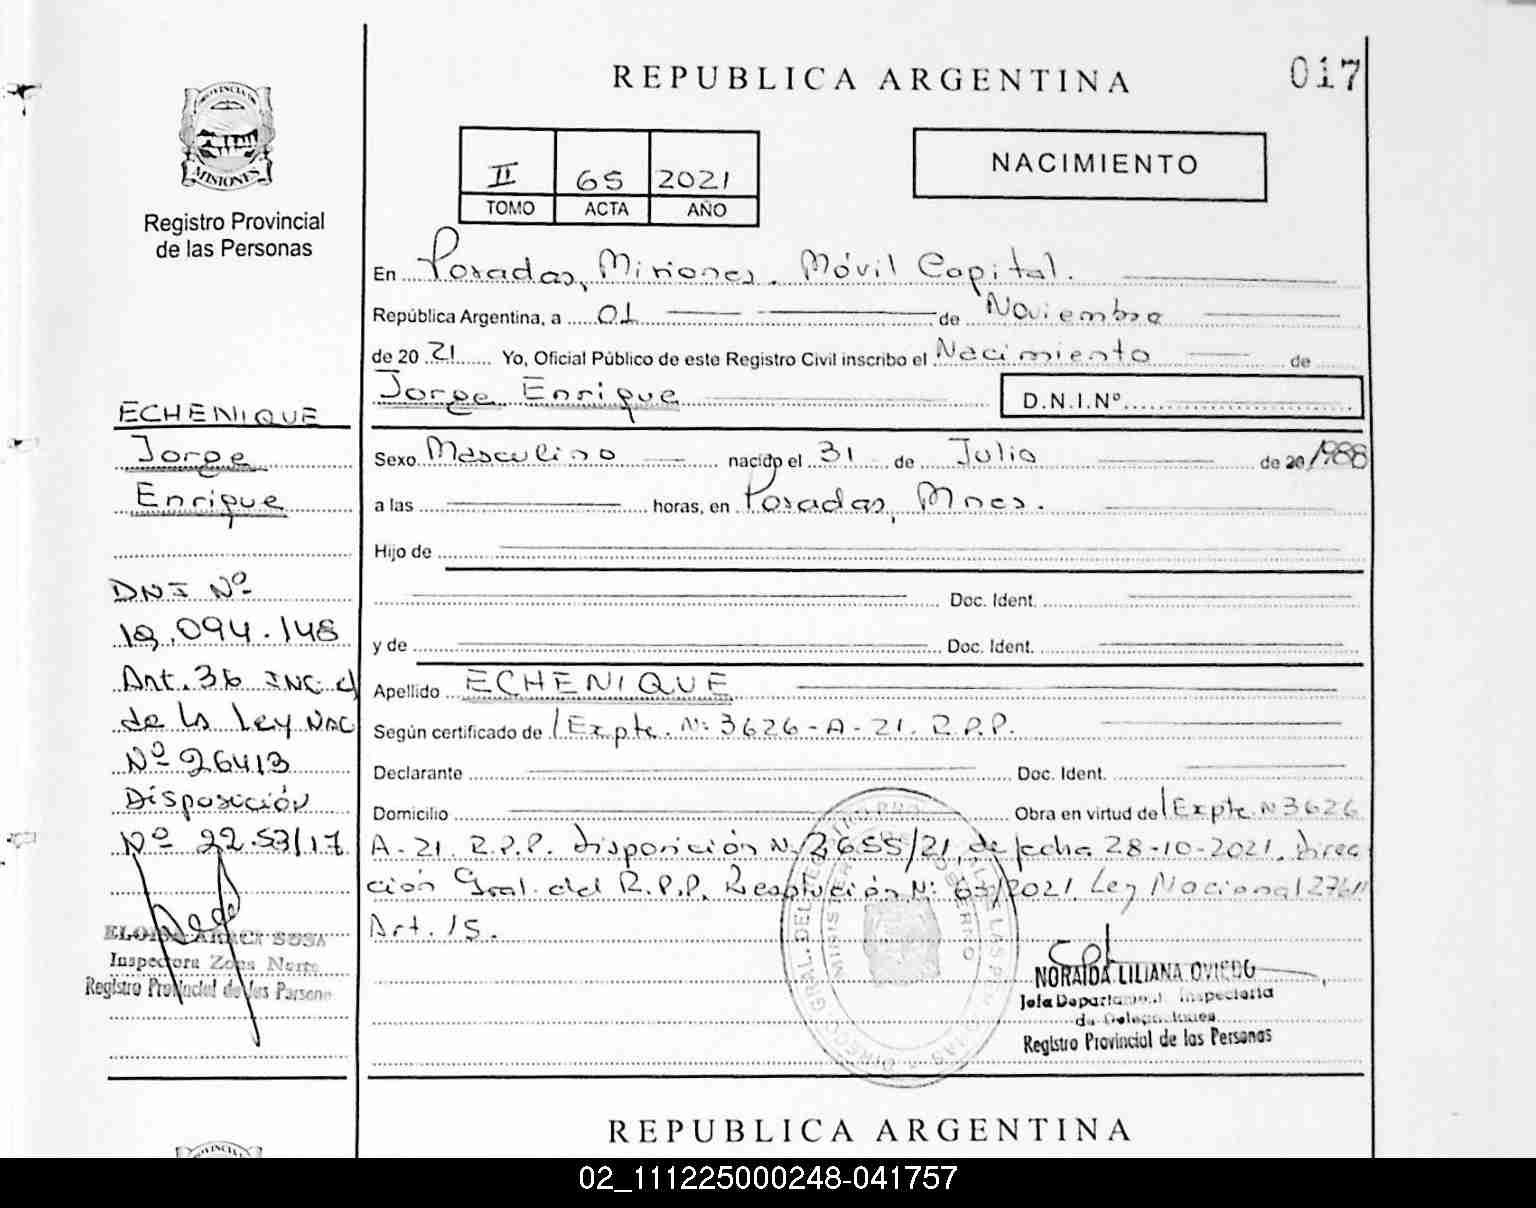 REPUBLICA ARGENTINA
017
PROVINCIA DE
MISIONES
Registro Provincial
de las Personas
II 65 2021
TOMO ACTA AÑO
NACIMIENTO
En Posadas, Misiones. Móvil Capital.
República Argentina, a 01 de Noviembre
de 20 21 Yo, Oficial Público de este Registro Civil inscribo el Nacimiento de
Jorge Enrique D.N.I.Nº
Sexo Masculino nacido el 31 de Julio de 20 1988
a las horas, en Posadas, Mnes.
Hijo de
Doc. Ident.
y de Doc. Ident.
Apellido ECHENIQUE
Según certificado de Expte. Nº 3626-A-21. R.P.P.
Declarante Doc. Ident.
Domicilio Obra en virtud de Expte. Nº 3626
A-21. R.P.P. Disposición Nº 2655/21, de fecha 28-10-2021. Direc
ción Gral. del R.P.P. Resolución Nº 63/2021 Ley Nacional 27611
Art. 15.
NORAIDA LILIANA OVIEDO
Jefa Departamento Inspectoria
de Delegaciones
Registro Provincial de las Personas
ECHENIQUE
Jorge
Enrique
DNI Nº
.094.148
Art. 36 INC. c)
de la Ley NAC
Nº 26413
Disposición
Nº 22.53/17
ELOISA ARACI SOSA
Inspectora Zona Norte
Registro Provincial de las Persona
REPUBLICA ARGENTINA
02_111225000248-041757